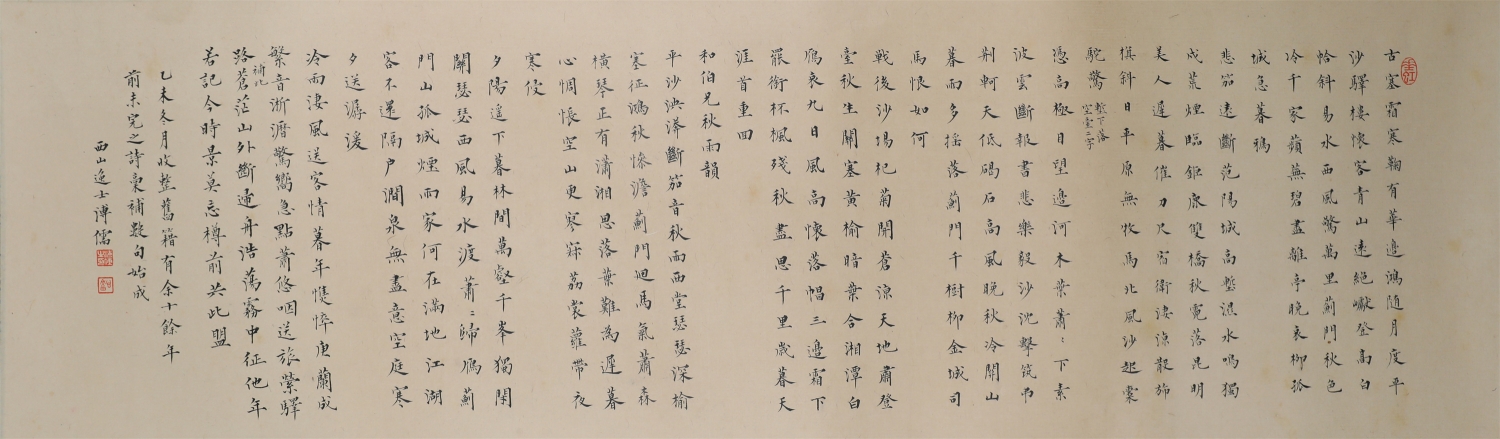 古塞霜寒鞠有華邊鴻隨月度平
沙驛樓懷客青山遠絕巘登高白
帢斜易水西風驚萬里薊門秋色
冷千家蘋蕪碧盡離亭晚衰柳孤
城急暮鴉
悲笳遠斷范陽城高塹濕水鳴獨
戍荒煙臨鉅鹿雙橋秋霓落昆明
美人遲暮催刀尺宿衛淒涼散斾
旗斜日平原無牧馬北風沙起橐
駝驚 塹下落空壘二字
憑高極目望邊河木葉蕭〻下素
波雲斷報書悲樂毅沙沈擊筑弔
荆軻天低碣石高風晚秋冷關山
暮雨多搖落薊門千樹柳金城司
馬恨如何
戰後沙場杞菊開蒼涼天地肅登
臺秋生關塞黃榆暗葉合湘潭白
鴈哀九日風高懷落帽三邊霜下
罷銜杯楓殘秋盡思千里歲暮天
涯首重回
和伯兄秋雨韻
平沙泱漭斷笳音秋雨西堂瑟瑟深榆
塞征鴻秋慘澹薊門迴馬氣蕭森
橫琴正有瀟湘思落葉難為遲暮
心惆悵空山更寒寂荔裳蘿帶夜
寒侵
夕陽遙下暮林間萬壑千峯獨閑
關瑟瑟西風易水渡蕭〻歸鴈薊
門山孤城煙雨家何在滿地江湖
客不還隔戶澗泉無盡意空庭寒
夕送潺湲
冷雨淒風送客情暮年憔悴庚蘭成
繁音淅瀝驚嚮急點蕭悠咽送旅縈驛
路蒼茫山外斷遞舟浩蕩霧中征他年
補記
若記今時景莫忘樽前共此盟
乙未冬月收整舊籍有余十餘年
前未完之詩稾補數句始成
西山逸士溥儒